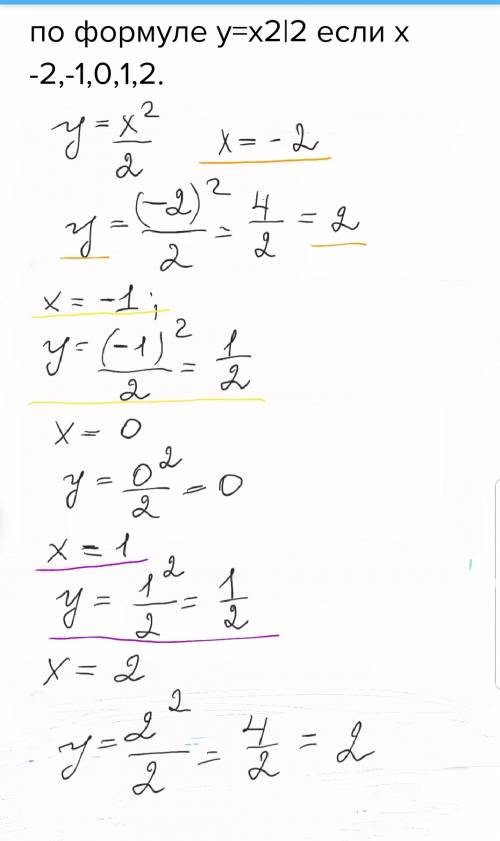 по формуле у=х2|2 если х
-2,-1,0,1,2.
y = x²/2   x = - 2
y = (-2)²/2 = 4/2 = 2
x = -1;
y = (-1)²/2 = 1/2
x = 0
y = 0²/2 = 0
x = 1
y = 1²/2 = 1/2
x = 2
y = 2²/2 = 4/2 = 2